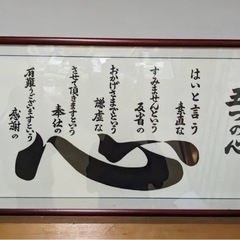 五つの心
はいと言う
素直な
すみませんという
反省の
おかげさまでという
謙虚な
させて頂きますという
奉仕の
有難うございますという
感謝の
心